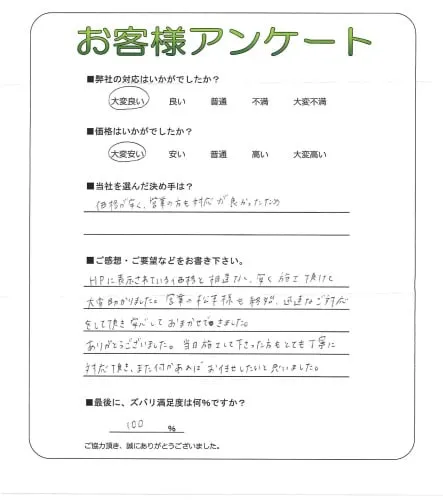 お客様アンケート
■弊社の対応はいかがでしたか？
大変良い 良い 普通 不満 大変不満
■価格はいかがでしたか？
大変安い 安い 普通 高い 大変高い
■当社を選んだ決め手は？
価格が安く、営業の方も対応が良かったため
■ご感想・ご要望などをお書き下さい。
HPに表示されている価格と相違なし、安く施工頂けて
大変助かりました。営業の松本様も 迅速なご対応
をして頂き安心しておまかせできました。
ありがとうございました。当日施工して下さった方もとても丁寧に
対応頂き、また何かあればお任せしたいと思いました。
■最後に、ズバリ満足度は何%ですか？
100 %
ご協力頂き、誠にありがとうございました。